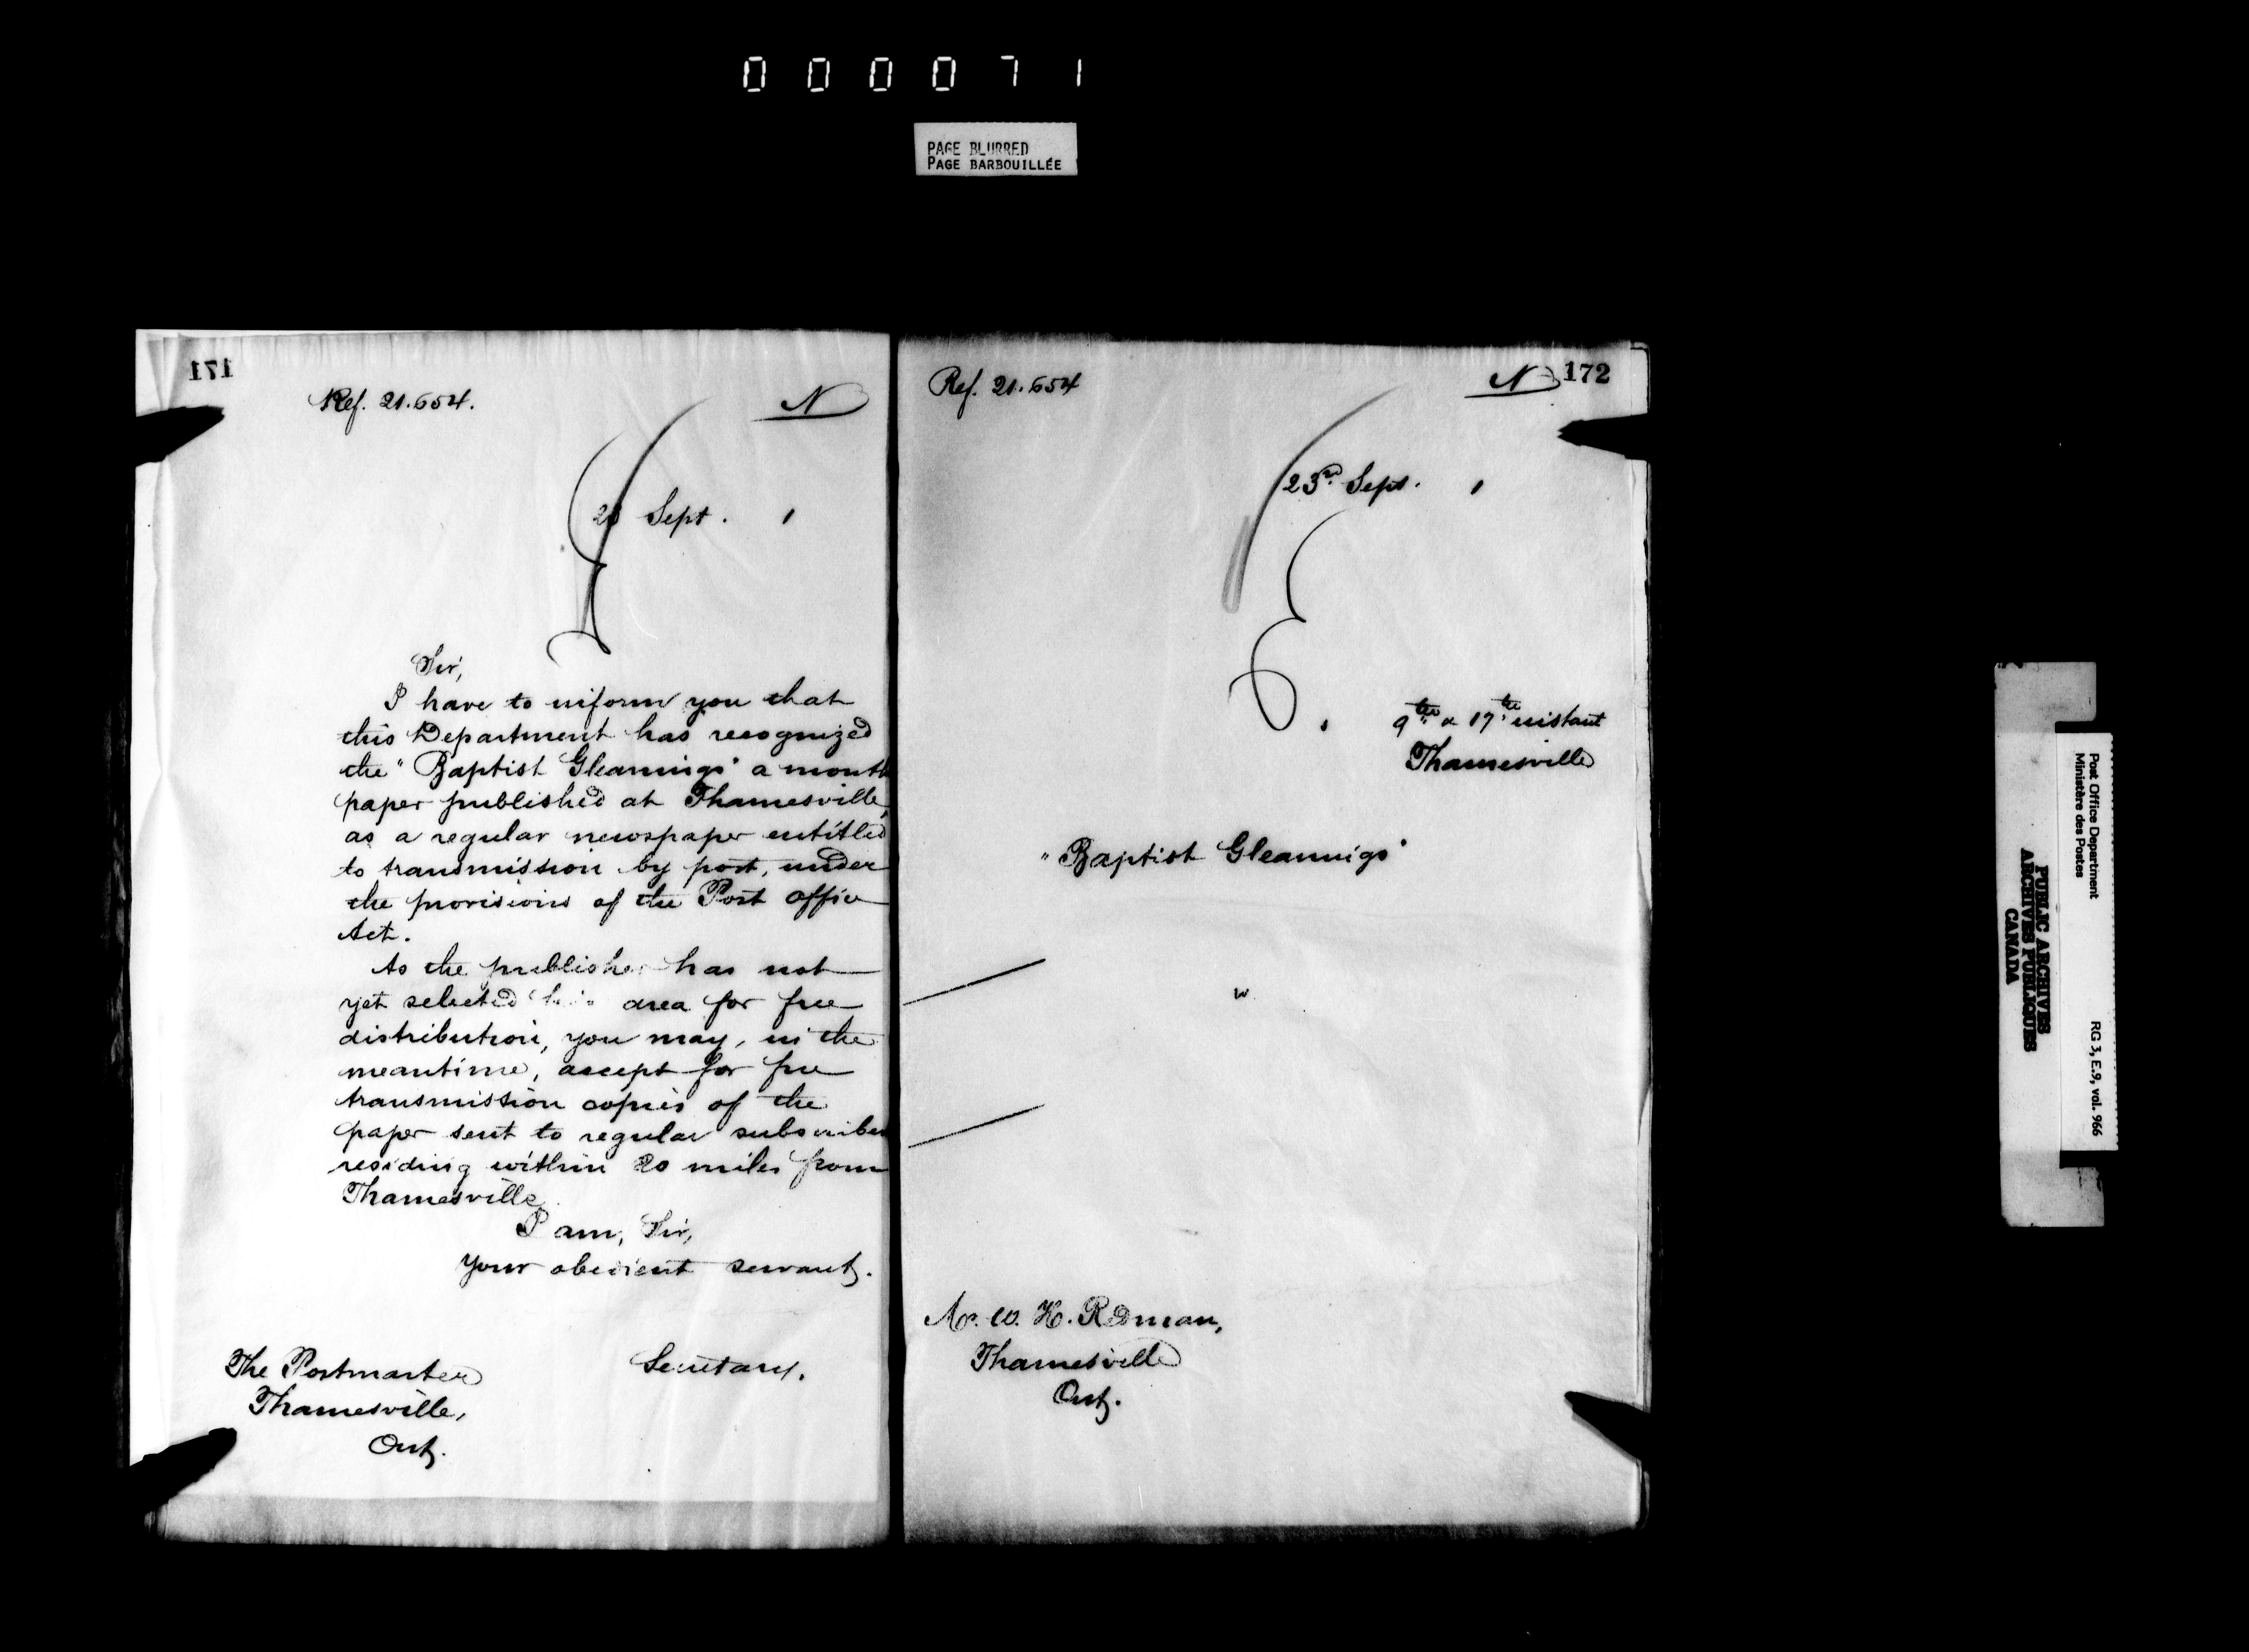 000071
PAGE BLURRED
PAGE BARBOUILLÉE
171
Ref. 21.654.
N
Sept. 1
Sir,
I have to inform you that
this Department has recognized
the "Baptist Gleanings" a month
paper published at Thamesville,
as a regular newspaper entitled
to transmission by post, under
the provisions of the Post Office
Act.
As the publisher has not
yet selected his area for free
distribution, you may, in the
meantime, accept for free
transmission copies of the
paper sent to regular subscriber
residing within 20 miles from
Thamesville.
I am, Sir,
Your obedient servant.
Secretary.
The Postmaster
Thamesville,
Ont.
172
Ref. 21.654
N
23rd Sept. 1
9th & 17th instant
Thamesville
"Baptist Gleanings"
W
Mr. W. H. Redman,
Thamesville
Ont.
Post Office Department
Ministère des Postes
RG 3, E.9, vol. 966
PUBLIC ARCHIVES
ARCHIVES PUBLIQUES
CANADA